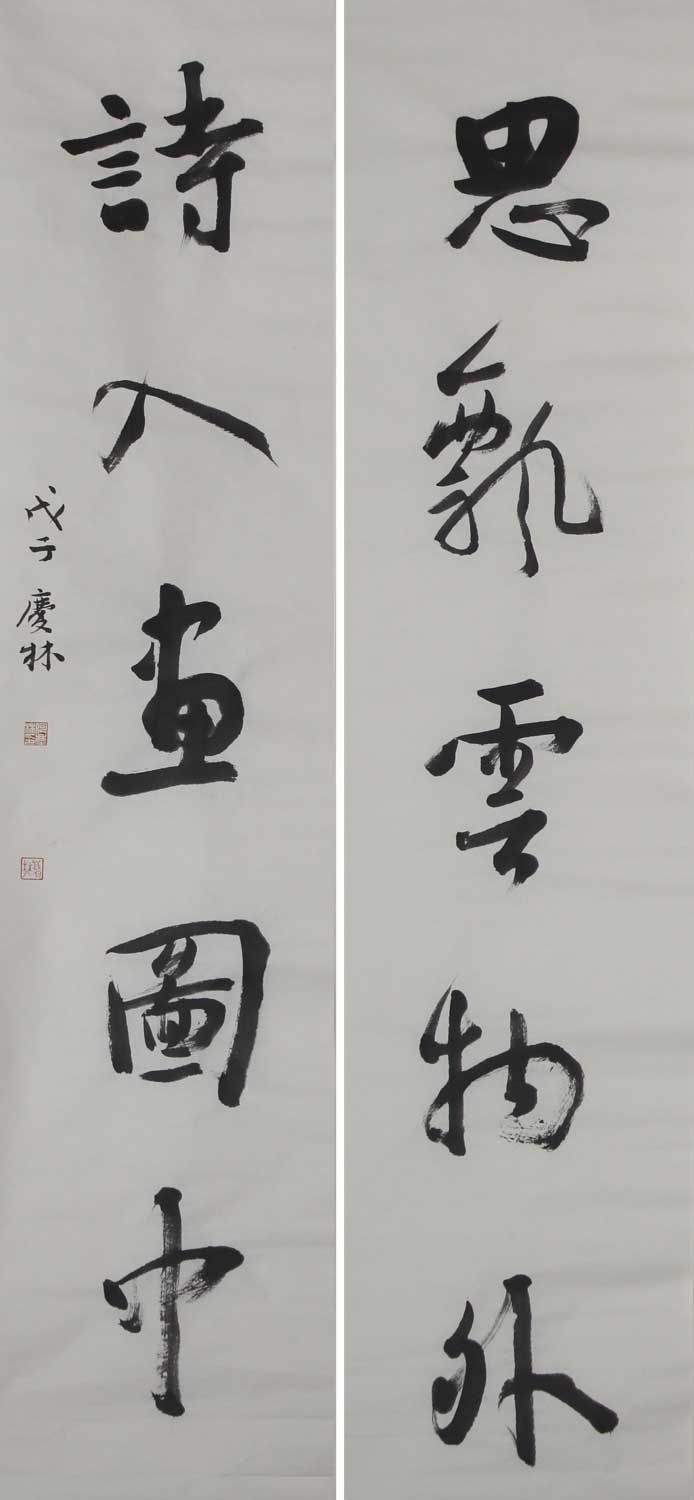 思飄雲物外
詩入畫圖中
戊子 慶林